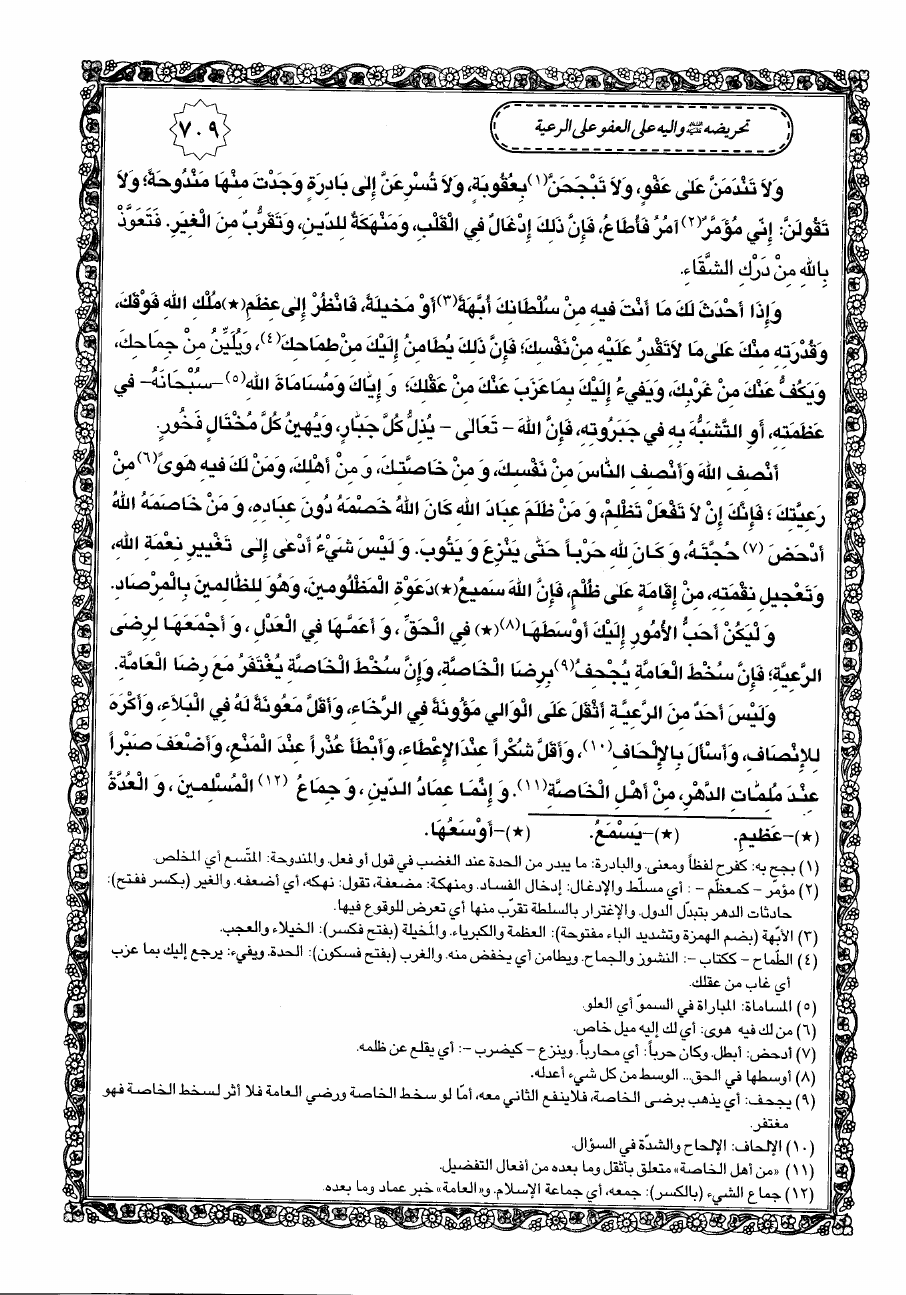 تحريضه عليه السلام واليه على العفو على الرعية
٧٠٩
وَلاَ تَنْدَمَنَّ عَلَى عَفْوٍ، وَلاَ تَبْجَحَنَّ(١) بِعُقُوبَةٍ، وَلاَ تُسْرِعَنَّ إِلَى بَادِرَةٍ وَجَدْتَ مِنْهَا مَنْدُوحَةً؛ وَلاَ
تَقُولَنَّ: إِنِّي مُؤَمَّرٌ(٢) آمُرُ فَأُطَاعُ، فَإِنَّ ذَلِكَ إِدْغَالٌ فِي الْقَلْبِ، وَمَنْهَكَةٌ لِلدِّينِ، وَتَقَرُّبٌ مِنَ الْغِيَرِ. فَتَعَوَّذْ
بِاللهِ مِنْ دَرَكِ الشَّقَاءِ.
وَإِذَا أَحْدَثَ لَكَ مَا أَنْتَ فِيهِ مِنْ سُلْطَانِكَ أُبَّهَةً(٣) أَوْ مَخِيلَةً، فَانْظُرْ إِلَى عِظَمِ(★) مُلْكِ اللهِ فَوْقَكَ،
وَقُدْرَتِهِ مِنْكَ عَلَى مَا لاَتَقْدِرُ عَلَيْهِ مِنْ نَفْسِكَ؛ فَإِنَّ ذَلِكَ يُطَامِنُ إِلَيْكَ مِنْ طِمَاحِكَ(٤)، وَيُلَيِّنُ مِنْ جِمَاحِكَ،
وَيَكُفُّ عَنْكَ مِنْ غَرْبِكَ، وَيَفِيءُ إِلَيْكَ بِمَا عَزَبَ عَنْكَ مِنْ عَقْلِكَ؛ وَ إِيَّاكَ وَمُسَامَاةَ اللهِ(٥) -سُبْحَانَهُ- فِي
عَظَمَتِهِ، أَوِ التَّشَبُّهَ بِهِ فِي جَبَرُوتِهِ، فَإِنَّ اللهَ - تَعَالَى - يُذِلُّ كُلَّ جَبَّارٍ، وَيُهِينُ كُلَّ مُخْتَالٍ فَخُورٍ.
أَنْصِفِ اللهَ وَأَنْصِفِ النَّاسَ مِنْ نَفْسِكَ، وَ مِنْ خَاصَّتِكَ، وَ مِنْ أَهْلِكَ، وَمَنْ لَكَ فِيهِ هَوىً(٦) مِنْ
رَعِيَّتِكَ؛ فَإِنَّكَ إِنْ لاَ تَفْعَلْ تَظْلِمْ، وَ مَنْ ظَلَمَ عِبَادَ اللهِ كَانَ اللهُ خَصْمَهُ دُونَ عِبَادِهِ، وَ مَنْ خَاصَمَهُ اللهُ
أَدْحَضَ(٧) حُجَّتَهُ، وَ كَانَ لِلهِ حَرْباً حَتَّى يَنْزِعَ وَ يَتُوبَ. وَ لَيْسَ شَيْءٌ أَدْعَى إِلَى تَغْيِيرِ نِعْمَةِ اللهِ،
وَتَعْجِيلِ نِقْمَتِهِ، مِنْ إِقَامَةٍ عَلَى ظُلْمٍ، فَإِنَّ اللهَ سَمِيعٌ(★) دَعْوَةَ الْمَظْلُومِينَ، وَهُوَ لِلظَّالِمِينَ بِالْمِرْصَادِ.
وَ لْيَكُنْ أَحَبُّ الأُمُورِ إِلَيْكَ أَوْسَطَهَا(٨)(★) فِي الْحَقِّ، وَ أَعَمَّهَا فِي الْعَدْلِ، وَ أَجْمَعَهَا لِرِضَى
الرَّعِيَّةِ؛ فَإِنَّ سُخْطَ الْعَامَّةِ يُجْحِفُ(٩) بِرِضَا الْخَاصَّةِ، وَإِنَّ سُخْطَ الْخَاصَّةِ يُغْتَفَرُ مَعَ رِضَا الْعَامَّةِ.
وَلَيْسَ أَحَدٌ مِنَ الرَّعِيَّةِ أَثْقَلَ عَلَى الْوَالِي مَؤُونَةً فِي الرَّخَاءِ، وَأَقَلَّ مَعُونَةً لَهُ فِي الْبَلاَءِ، وَأَكْرَهَ
لِلإِنْصَافِ، وَأَسْأَلَ بِالإِلْحَافِ(١٠)، وَأَقَلَّ شُكْراً عِنْدَ الإِعْطَاءِ، وَأَبْطَأَ عُذْراً عِنْدَ الْمَنْعِ، وَأَضْعَفَ صَبْراً
عِنْدَ مُلِمَّاتِ الدَّهْرِ، مِنْ أَهْلِ الْخَاصَّةِ(١١). وَ إِنَّمَا عِمَادُ الدِّينِ، وَ جِمَاعُ(١٢) الْمُسْلِمِينَ، وَ الْعُدَّةُ
(★)-عَظِيمِ. (★)-يَسْمَعُ. (★)-أَوْسَعُهَا.
(١) بجح به: كفرح لفظاً ومعنى. والبادرة: ما يبدر من الحدة عند الغضب في قول أو فعل. والمندوحة: المتّسع أي المخلص.
(٢) مؤمّر - كمعظّم -: أي مسلّط والإدغال: إدخال الفساد. ومنهكة: مضعفة، تقول: نهكه، أي أضعفه. والغير (بكسر ففتح):
حادثات الدهر بتبدّل الدول. والإغترار بالسلطة تقرّب منها أي تعرض للوقوع فيها.
(٣) الأبّهة (بضم الهمزة وتشديد الباء مفتوحة): العظمة والكبرياء. والمخيلة (بفتح فكسر): الخيلاء والعجب.
(٤) الطّماح - ككتاب -: النشوز والجماح. ويطامن أي يخفض منه. والغرب (بفتح فسكون): الحدة. ويفيء: يرجع إليك بما عزب
أي غاب من عقلك.
(٥) المساماة: المباراة في السموّ أي العلو.
(٦) من لك فيه هوى: أي لك إليه ميل خاص.
(٧) أدحض: أبطل. وكان حرباً: أي محارباً. وينزع - كيضرب -: أي يقلع عن ظلمه.
(٨) أوسطها في الحق... الوسط من كل شيء أعدله.
(٩) يجحف: أي يذهب برضى الخاصة، فلاينفع الثاني معه، أمّا لو سخط الخاصة ورضي العامة فلا أثر لسخط الخاصة فهو
مغتفر.
(١٠) الإلحاف: الإلحاح والشدّة في السؤال.
(١١) «من أهل الخاصة» متعلق بأثقل وما بعده من أفعال التفضيل.
(١٢) جماع الشيء (بالكسر): جمعه، أي جماعة الإسلام. و«العامة» خبر عماد وما بعده.